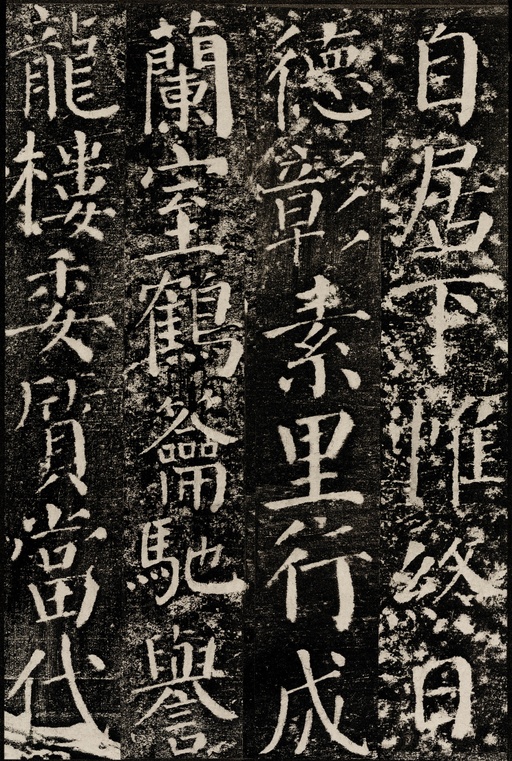 自居下帷終日
德彰素里行成
蘭室鶴籥馳譽
龍樓委質當代